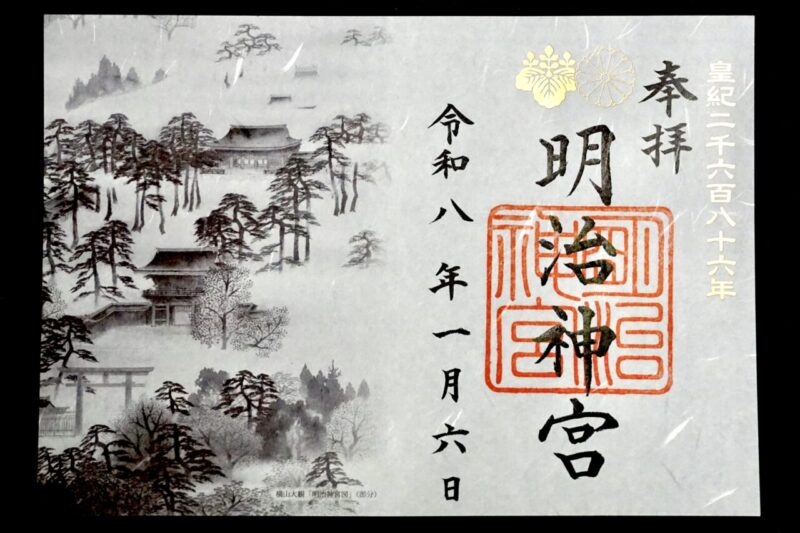 皇紀二千六百八十六年
奉拝
明治神宮
明治神宮
令和八年一月六日
横山大観「明治神宮図」（部分）